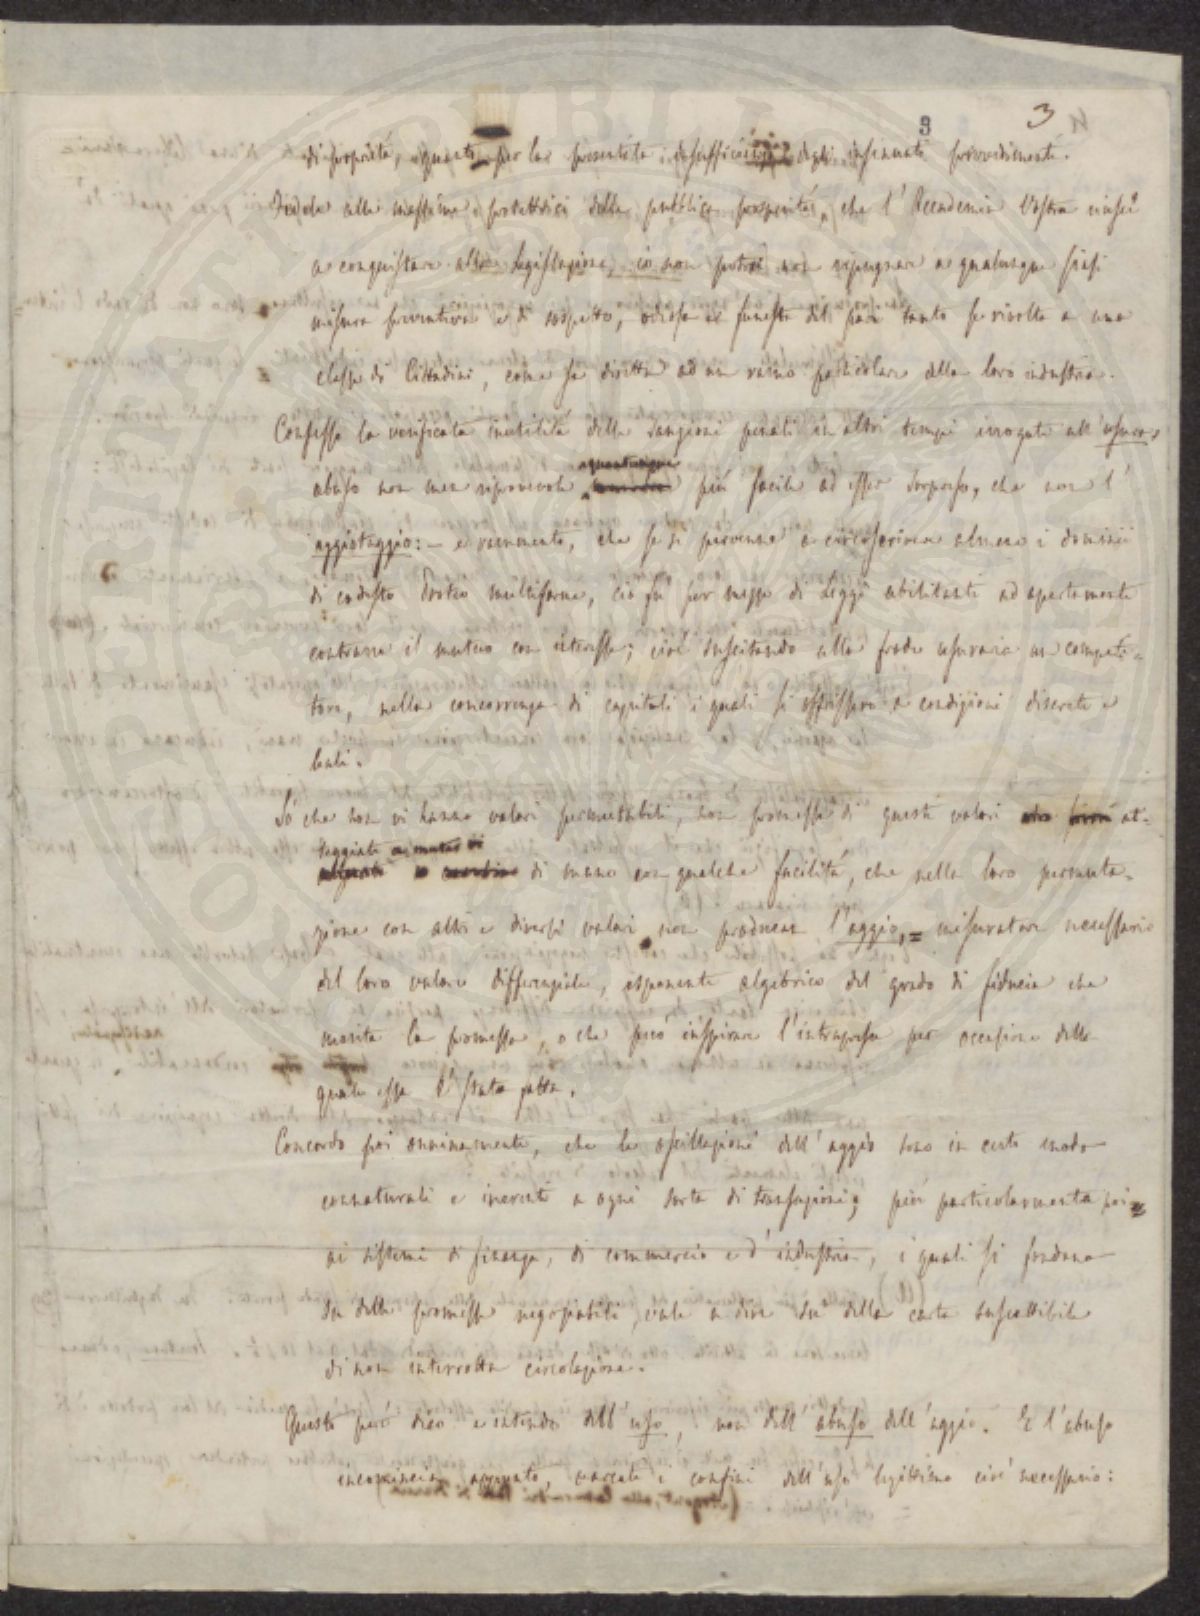 3
9
di proprietà, quanto per la presentita insufficienza degli insinuati provvedimenti.
Fedele alle massime protettrici della pubblica prosperità, che l'Accademia Vostra riuscì
a conquistare alla Legislazione, io non potrei non ripugnare a qualunque siasi
misura preventiva e di sospetto, odiosa e funesta del pari tanto se rivolta a una
classe di Cittadini, come se diretta ad un ramo particolare della loro industria.
Confesso la verificata inutilità delle sanzioni penali in altri tempi irrogate all'usura,
abuso non men riprovevole quantunque più facile ad esser sorpreso, che non l'
aggiotaggio: - e veramente, che se si pervenne a circoscrivere almeno i dominii
di codesto Proteo multiforme, ciò fu per mezzo di Leggi abilitanti ad apertamente
contrarre il mutuo con interesse; cioè suscitando alla frode usuraia un competi-
tore, nella concorrenza di capitali i quali si offrissero a condizioni discrete e
leali.
So che non vi hanno valori permutabili, non promesse di questi valori at-
teggiate a mutar di
di mano con qualche facilità, che nella loro permuta-
zione con altri e diversi valori non producan l'aggio, = misuratore necessario
del loro valore differenziale, esponente algebrico del grado di fiducia che
merita la promessa, o che può inspirare l'intrapresa per occasione della
quale essa è stata fatta.
Concordo poi onninamente, che le oscillazioni dell'aggio sono in certo modo
connaturali e inerenti a ogni sorta di transazioni; più particolarmente poi
ai sistemi di finanza, di commercio e d'industria, i quali si fondano
su delle promesse negoziabili, vale a dire su della carta suscettibile
di non interrotta circolazione.
Questo però dico e intendo dell'uso, non dell'abuso dell'aggio. E l'abuso
incomincia appunto, varcati i confini dell'uso legittimo cioè necessario: